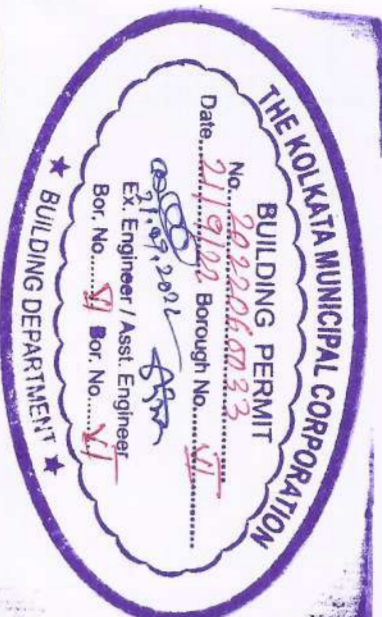 THE KOLKATA MUNICIPAL CORPORATION
BUILDING PERMIT
No. 2022060033
Date 21/9/22 Borough No. VI
21.09.2022
Ex. Engineer / Asst. Engineer
Bor. No. VI Bor. No. VI
★ BUILDING DEPARTMENT ★